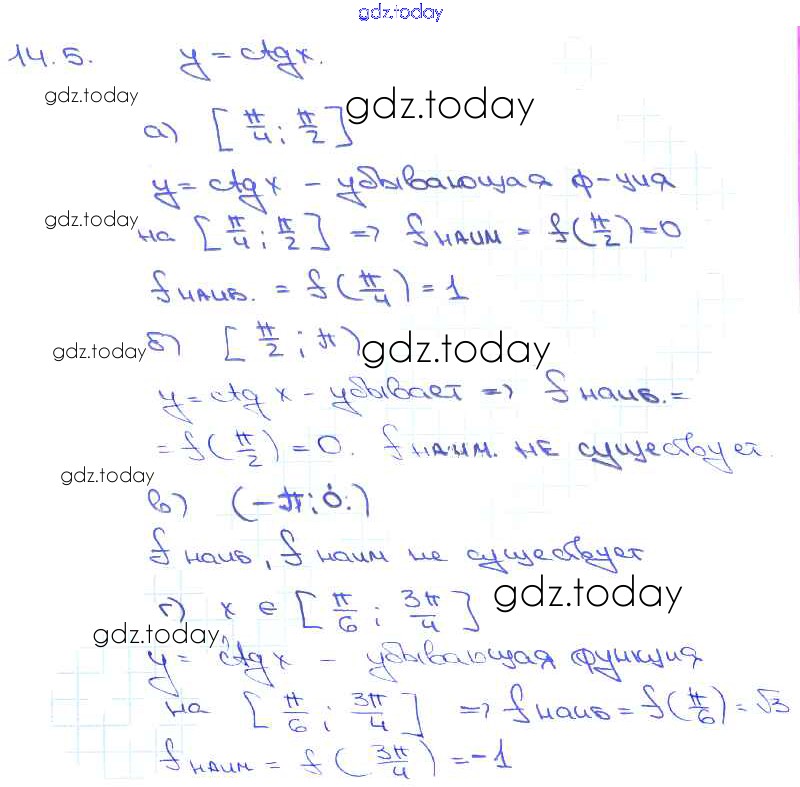 gdz.today
14.5. y = ctgx.
gdz.today
а) [π/4; π/2] gdz.today
y = ctgx – убывающая ф-ция
gdz.today
на [π/4; π/2] => fнаим = f(π/2) = 0
fнаиб. = f(π/4) = 1
gdz.today б) [π/2; π) gdz.today
y = ctgx – убывает => fнаиб. =
= f(π/2) = 0. fнаим. не существует.
gdz.today
в) (-π; 0.)
fнаиб, fнаим не существует
г) x ∈ [π/6; 3π/4] gdz.today
gdz.today
y = ctgx – убывающая функция
на [π/6; 3π/4] => fнаиб = f(π/6) = √3
fнаим = f(3π/4) = -1